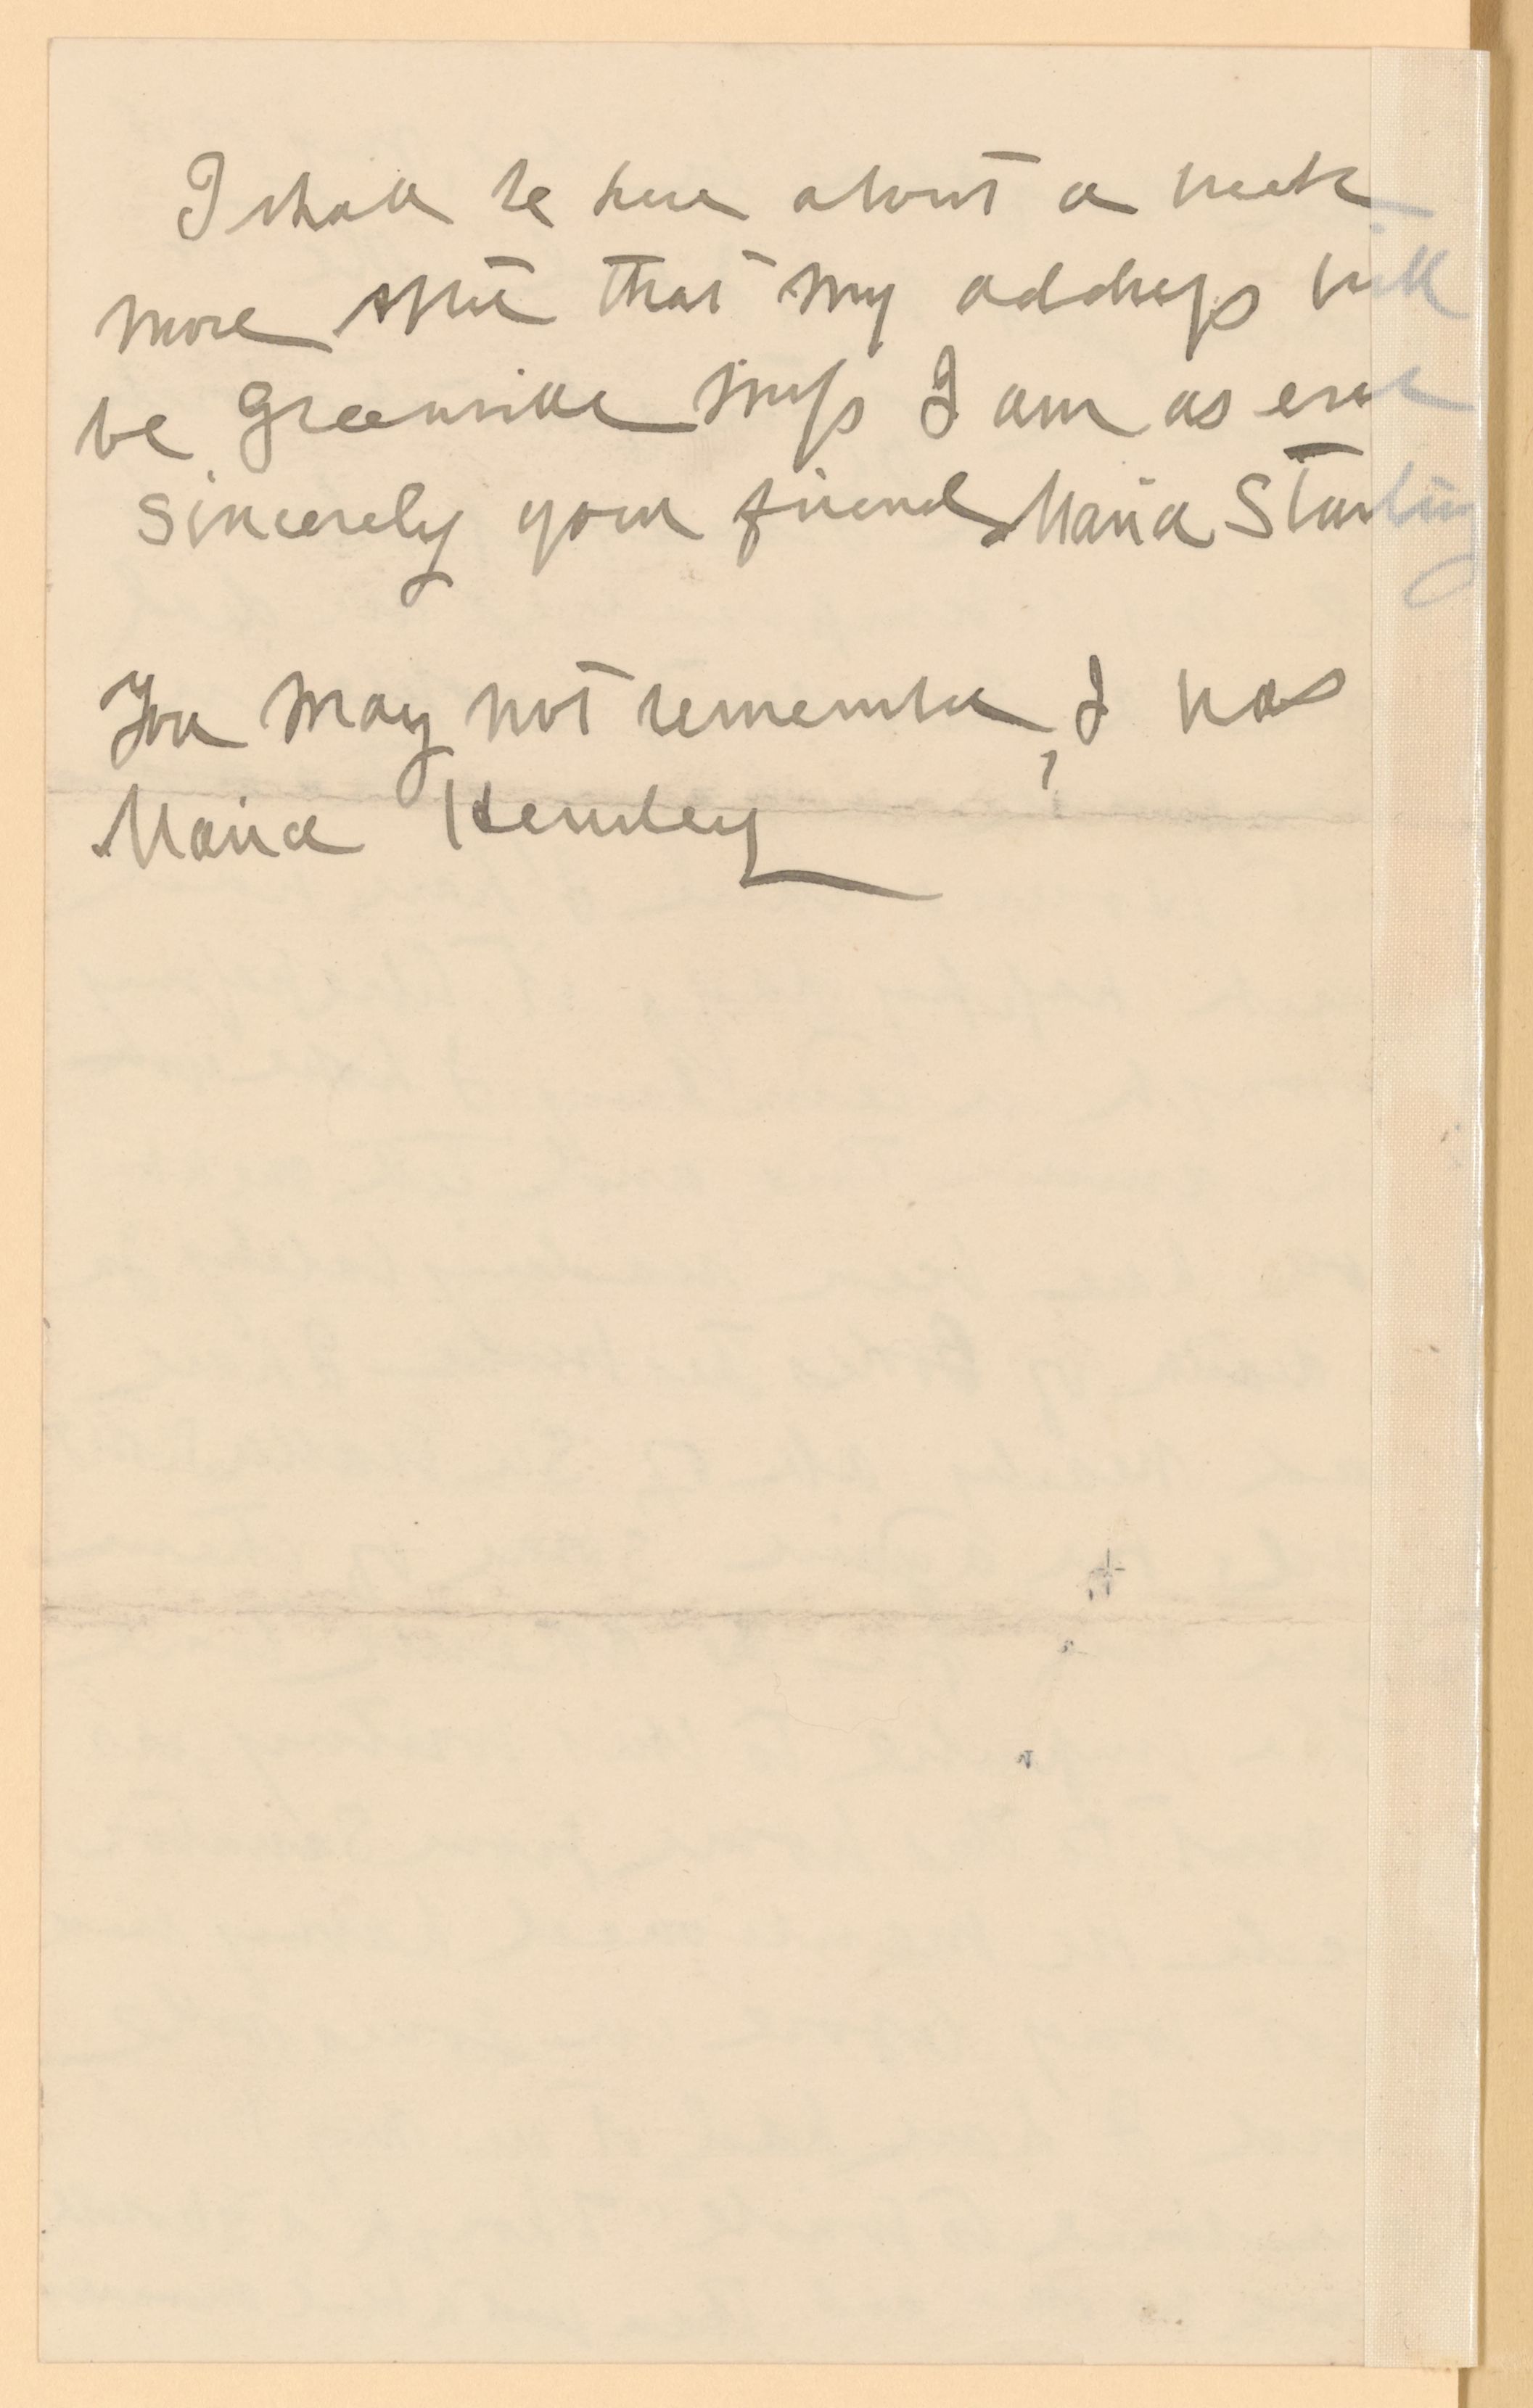 I shall be here about a week
more after that my address will
be Greenville Miss I am as ever
sincerely your friend Maria Starling
You may not remember, I was
Maria Hensley